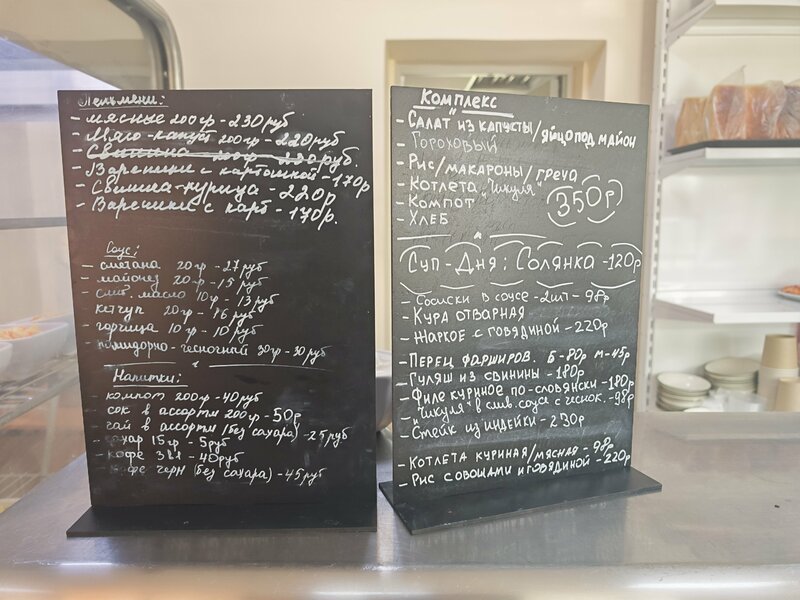 Пельмени:
- мясные 200гр - 230руб
- Мясо-капуст 200гр - 220руб
- Свинина 200гр - 230руб.
- Вареники с картошкой - 170р
- Свинина-курица - 220р
- Вареники с карт - 170р.
Соус:
- сметана 20гр - 27руб
- майонез 20гр - 15руб
- слив. масло 10гр - 13руб
- кетчуп 20гр - 16руб
- горчица 10гр - 10руб
- помидорно-чесночный 30гр - 30руб
Напитки:
- компот 200гр - 40руб
- сок в ассорти 200гр - 50р
- чай в ассорти (без сахара) - 25руб
- сахар 15гр - 5руб
- кофе 3в1 - 40руб
- кофе черн (без сахара) - 45руб
Комплекс
- Салат "из капусты/яйцо под майон
- Гороховый
- Рис/макароны/греча
- Котлета "Шкуля"
- Компот
- Хлеб
350р
Суп-Дня: Солянка - 120р
- Сосиски в соусе - 2шт - 98р
- Кура отварная
- Жаркое с говядиной - 220р
- Перец фарширов. Б - 80р М - 45р
- Гуляш из свинины - 180р
- Филе куриное по-словянски - 180р
- "Шкуля" в слив. соусе с чеснок. - 98р
- Стейк из индейки - 230р
- Котлета куриная/мясная - 98р
- Рис с овощами и говядиной - 220р